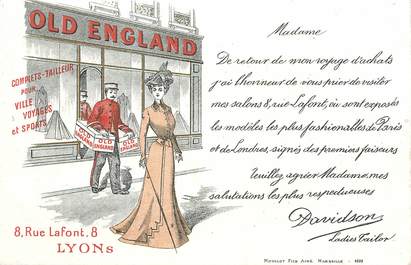 OLD ENGLAND
COMPLETS-TAILLEUR
POUR
VILLE
VOYAGES
et SPORTS
OLD
ENGLAND
OLD
ENGLAND
OLD
ENGLAND
8, Rue Lafont, 8
LYONS
Madame
De retour de mon voyage d'achats
j'ai l'honneur de vous prier de visiter
mes salons 8, rue Lafont, où sont exposés
les modèles les plus fashionables de Paris
et de Londres, signés des premiers faiseurs
Veuillez agréer Madame, mes
salutations les plus respectueuses
Davidson
Ladies Tailor
MOULLOT FILS AINÉ, MARSEILLE